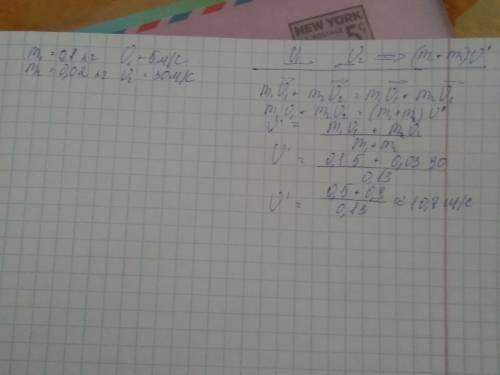 NEW YORK
5¢
m₁ = 0,1 кг υ₁ = 5 м/с
m₂ = 0,02 кг υ₂ = 30 м/с
υ₁ υ₂ ⇒ (m₁+m₂)υ'
m₁υ₁ + m₂υ₂ = m₁υ₁ + m₂υ₂
m₁υ₁ + m₂υ₂ = (m₁+m₂) υ'
υ' = m₁υ₁ + m₂υ₂
m₁+m₂
υ' = 0,1·5 + 0,03·30
0,13
υ' = 0,5+0,9
0,13
≈ 10,7 м/с